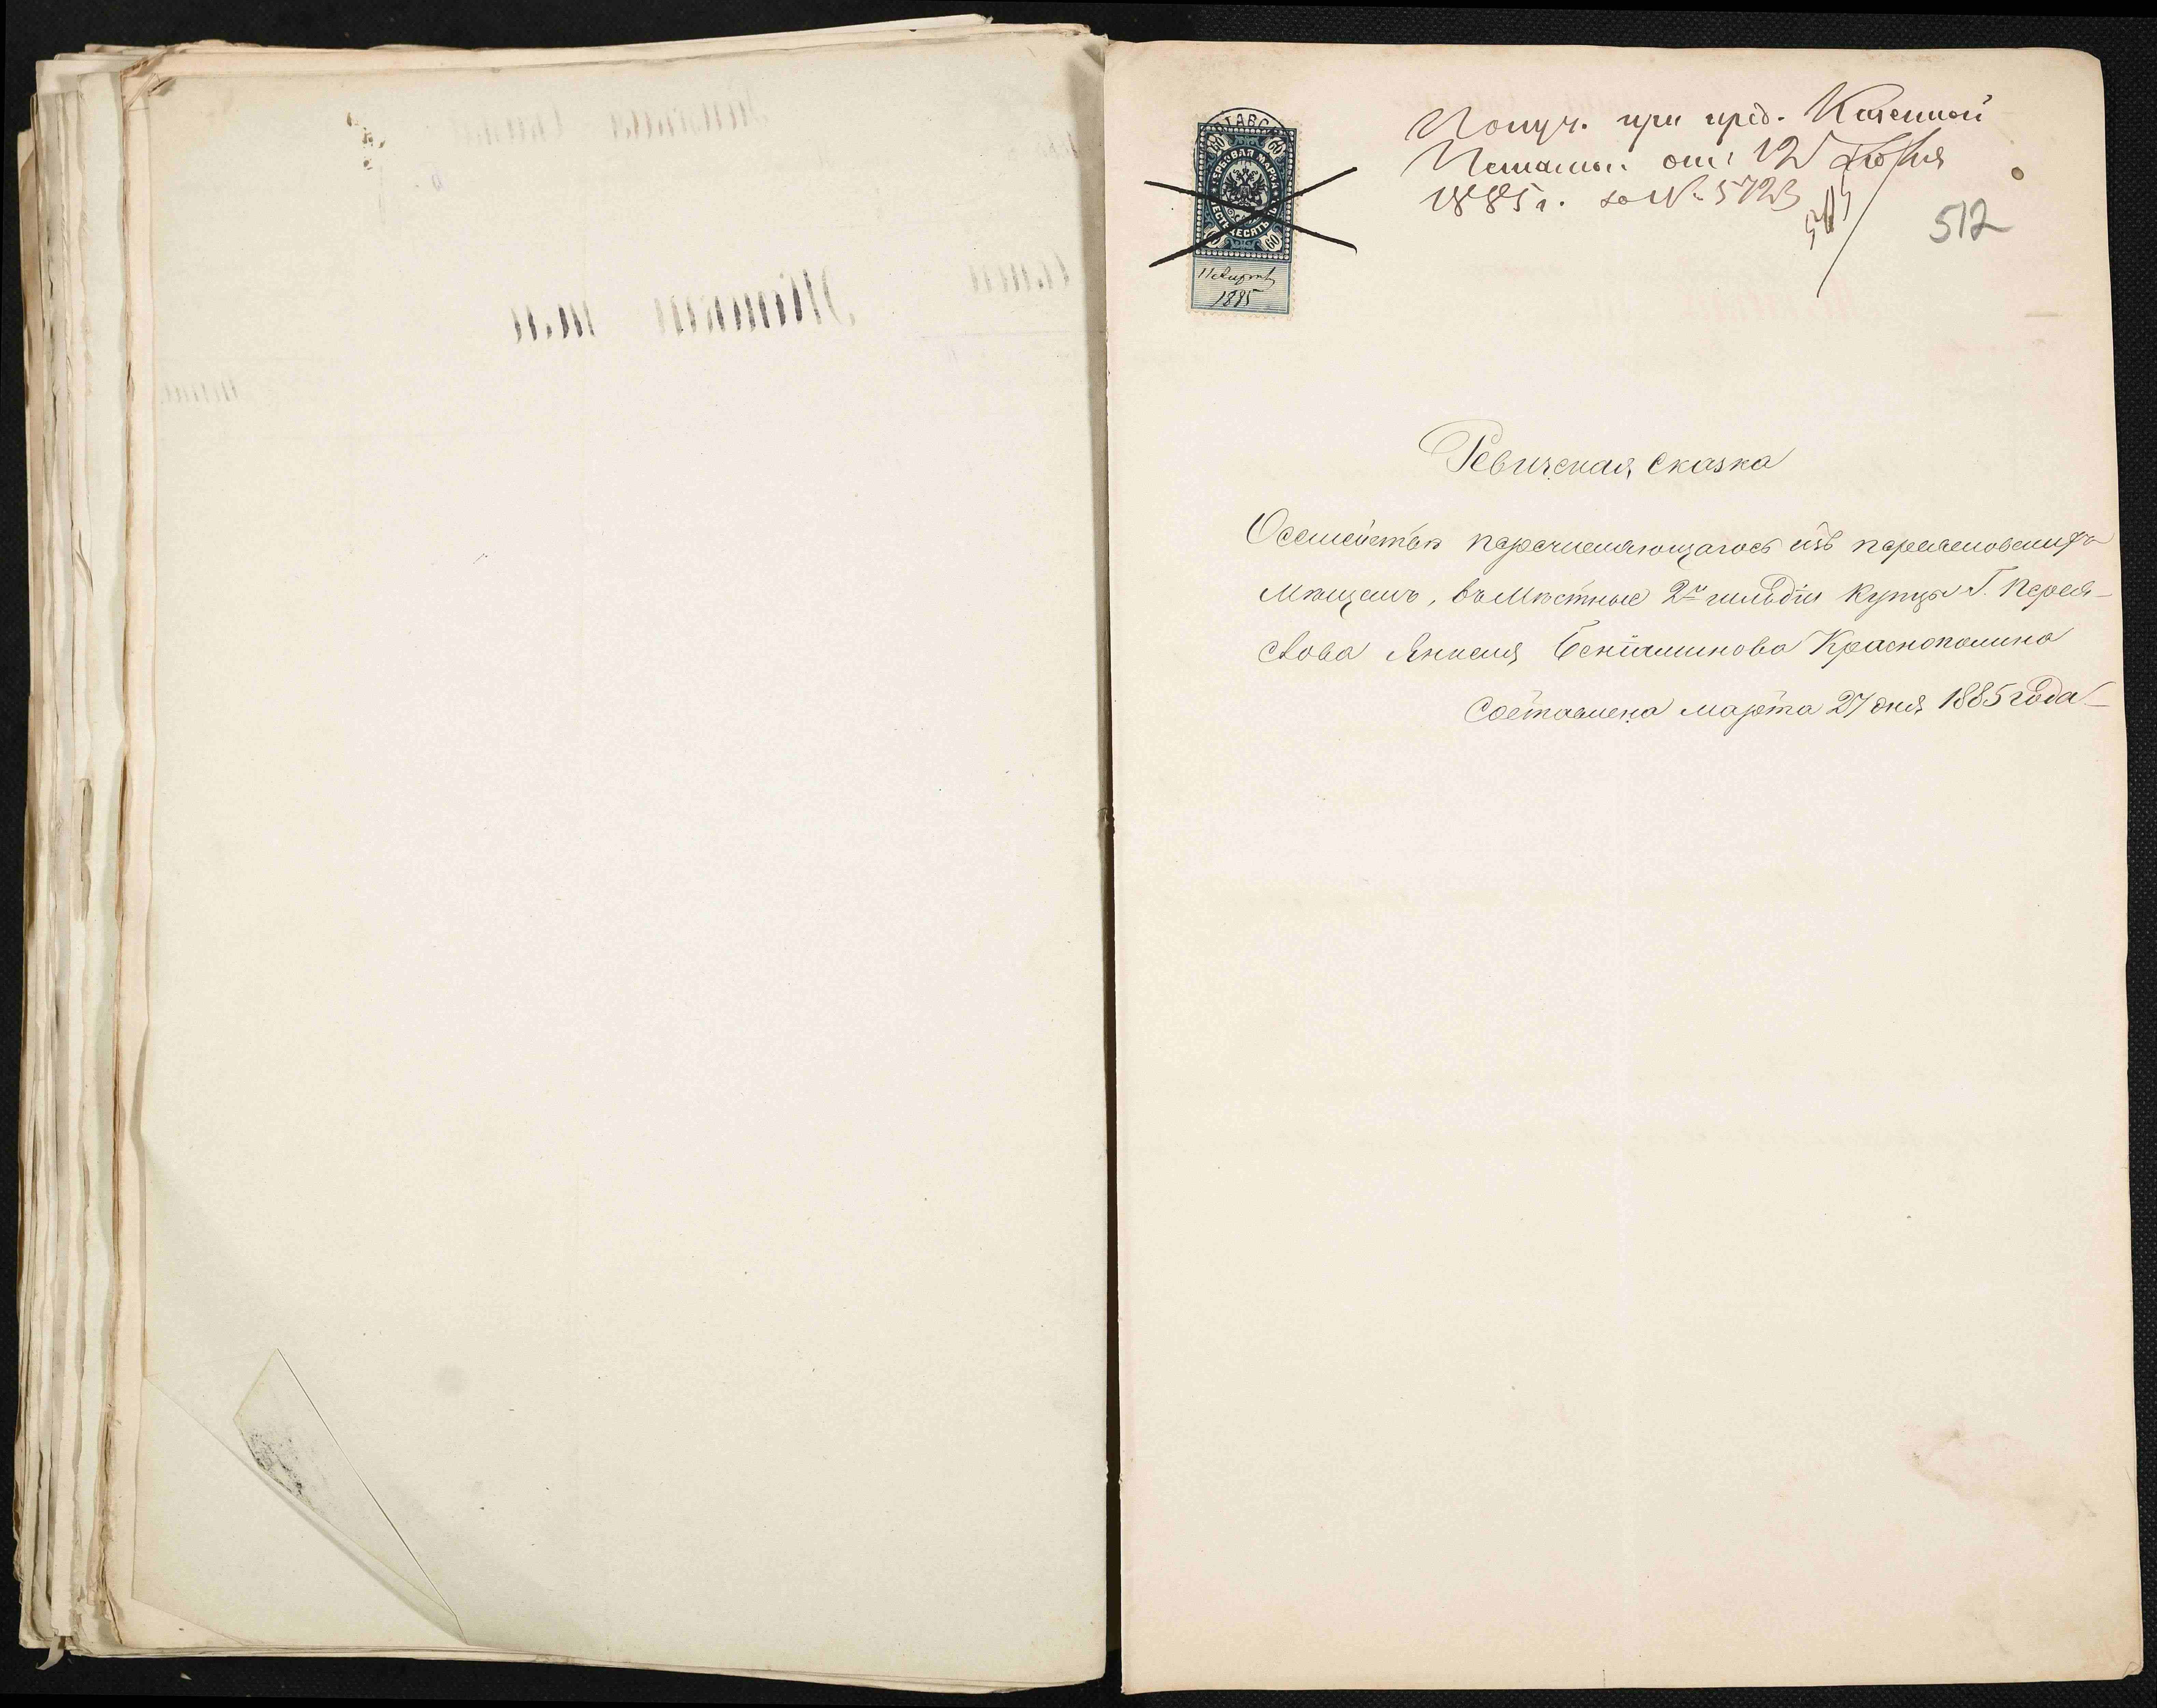 Получ. при пред. Казенной
Палаты от 12 Июня
1885 г. за № 5723
512
ГЕРБОВАЯ МАРКА
60 60
60
1885
Ревизская сказка
О семействѣ перечисляющагося изъ переяславскихъ
мѣщанъ, въ мѣстные 2й гильдіи купцы Г. Перея-
слова Янкеля Беніаминова Краснополина
Составлена марта 27 дня 1885 года